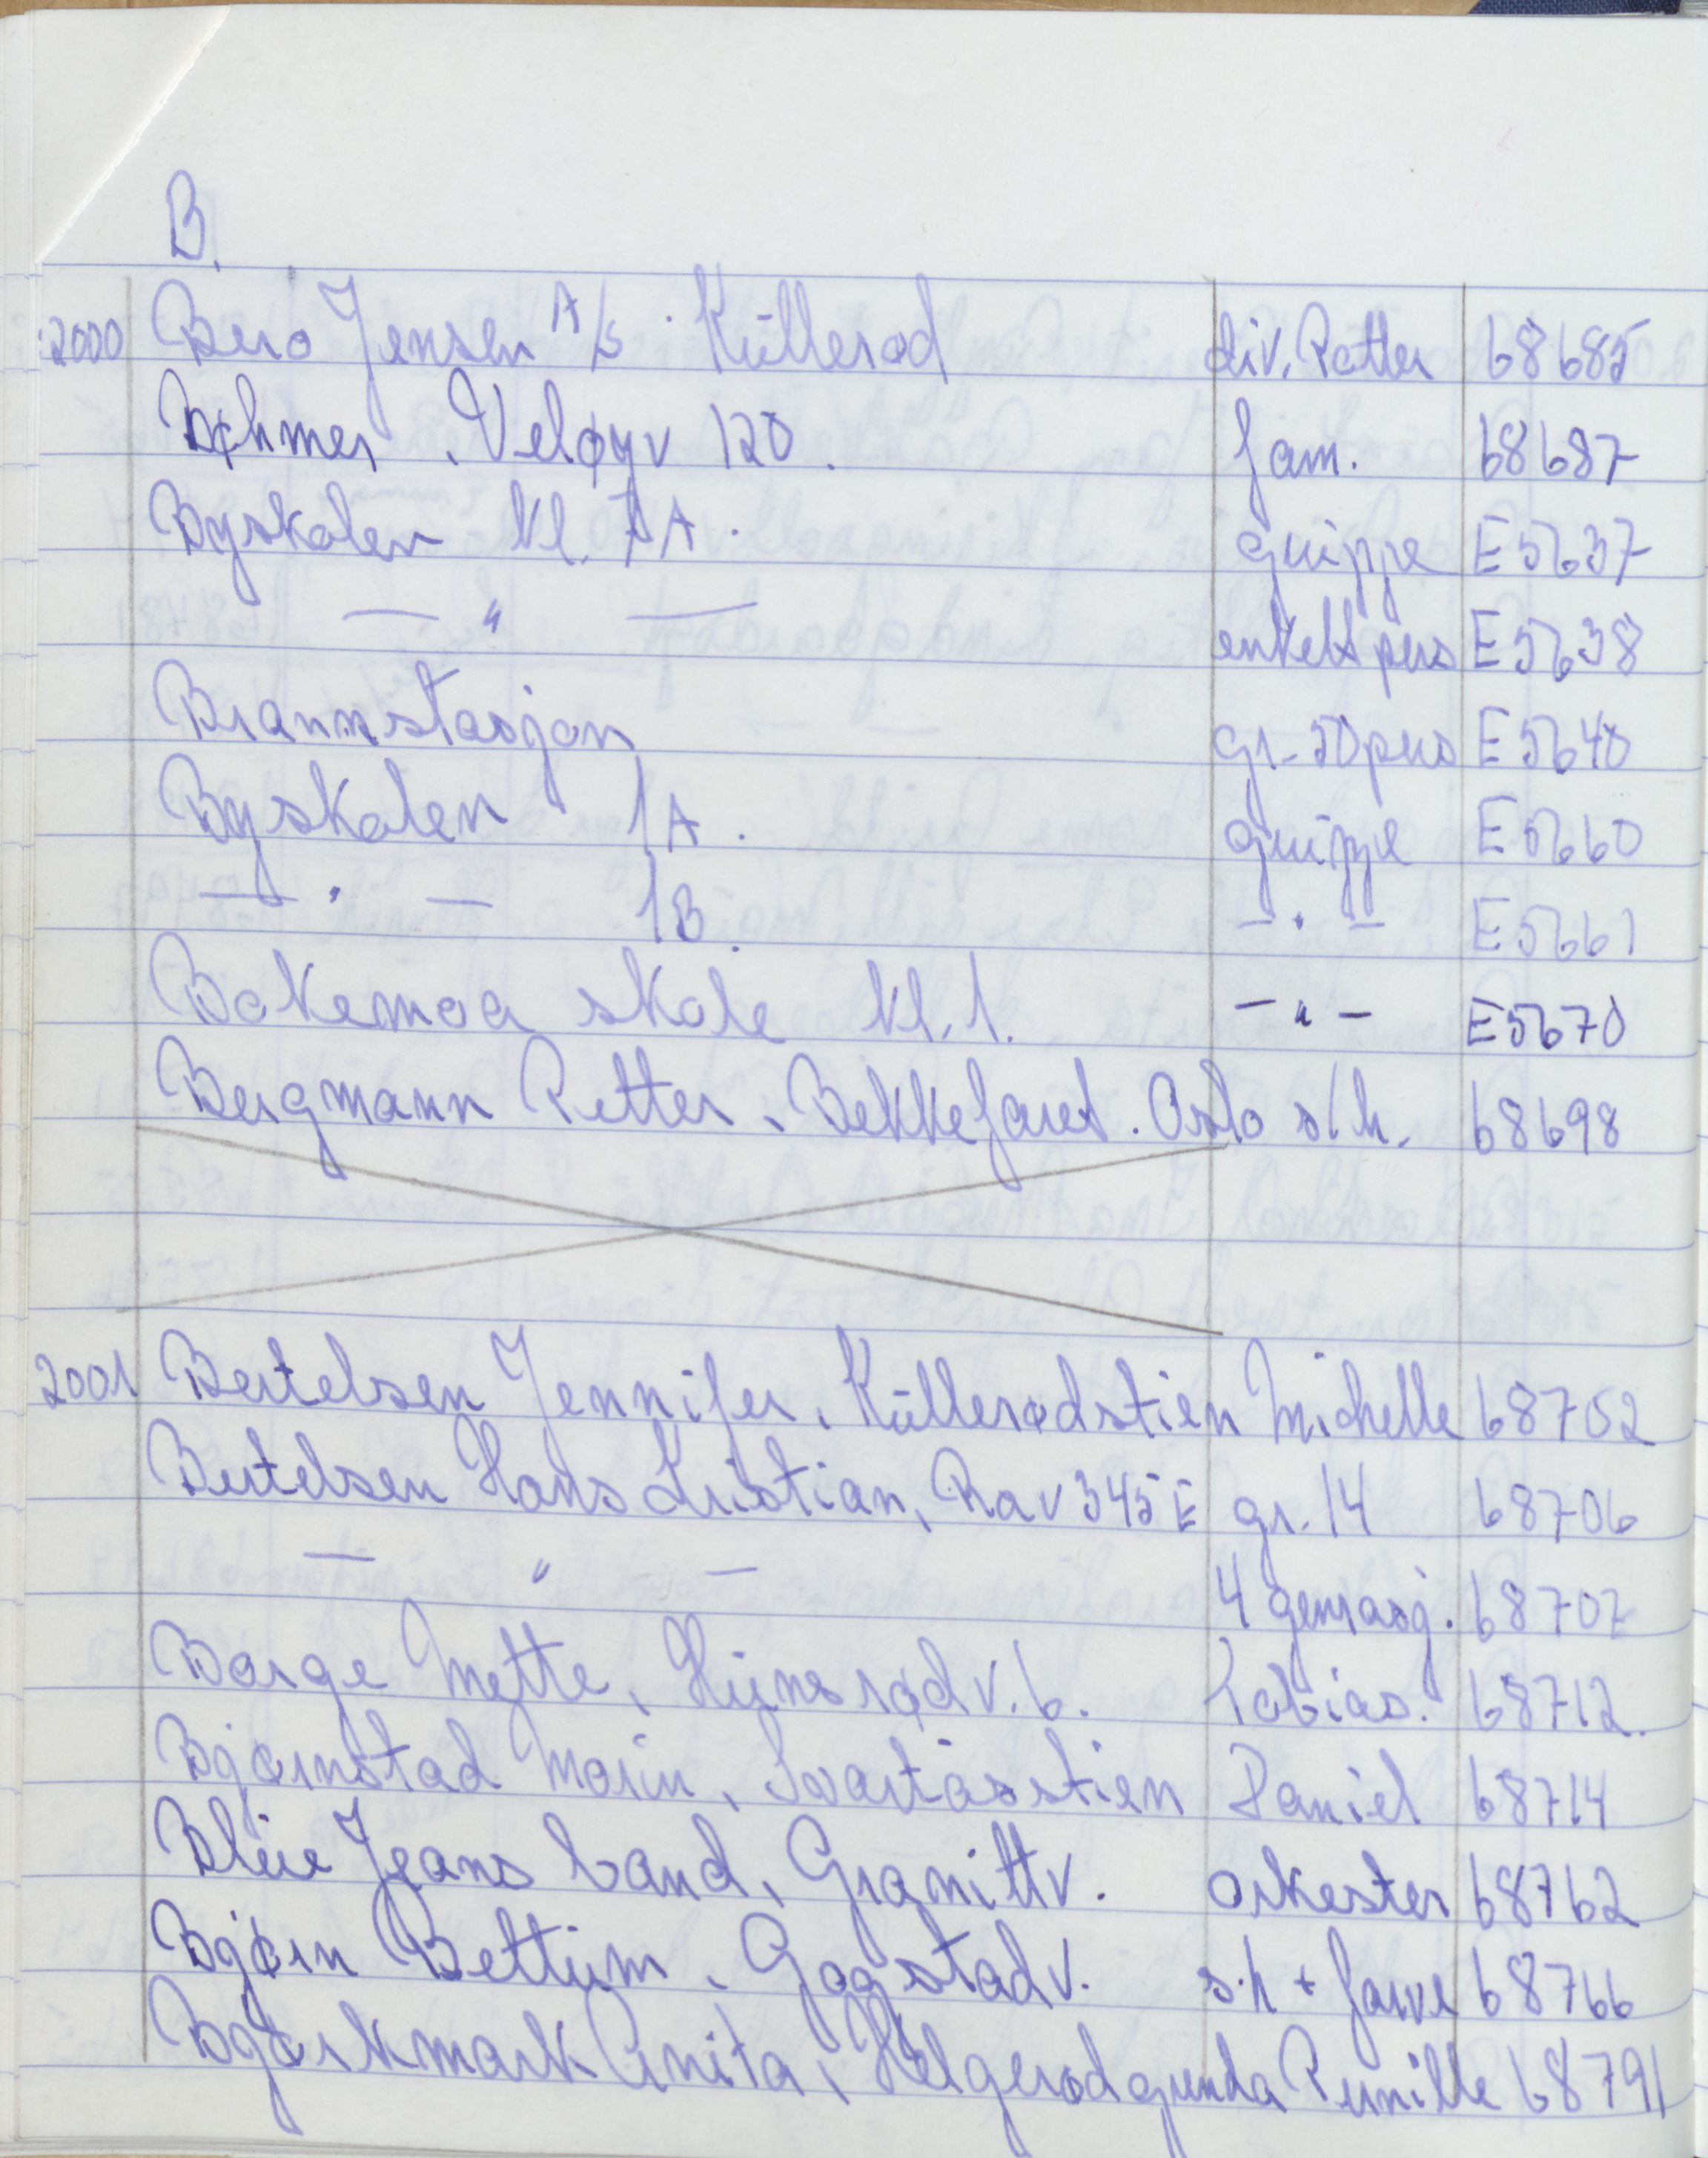 B.
2000 Bero Jensen A/S Kullerød div. Potter 68685
Bøhmer, Veløyv 120. fam. 68687
Byskolen kl. 7A. gruppe E5637
— " — enkelt pers E5638
Brannstasjon gr-50pers E5640
Byskolen 1A. gruppe E5660
— " — 1B. — " — E5661
Bokemoa skole kl. 1. — " — E5670
Bergmann Petter, Bekkefaret. Oslo s/h. 68698
2001 Bertelsen Jennifer, Kullerødstien Michelle 68702
Bertelsen Hans Kristian, Rav 345E gr. 14 68706
— " — 4 gensasj. 68707
Borge Mette, Hunsrødv. 6. Tobias. 68712.
Bjørnstad Marin, Svartåsstien Daniel 68714
Blue Jeans band, Granittv. orkester 68762
Bjørn Bettum, Gogstadv. s.h + farve 68766
Bjørkmark Anita, Helgerødgrenda Pernille 68791